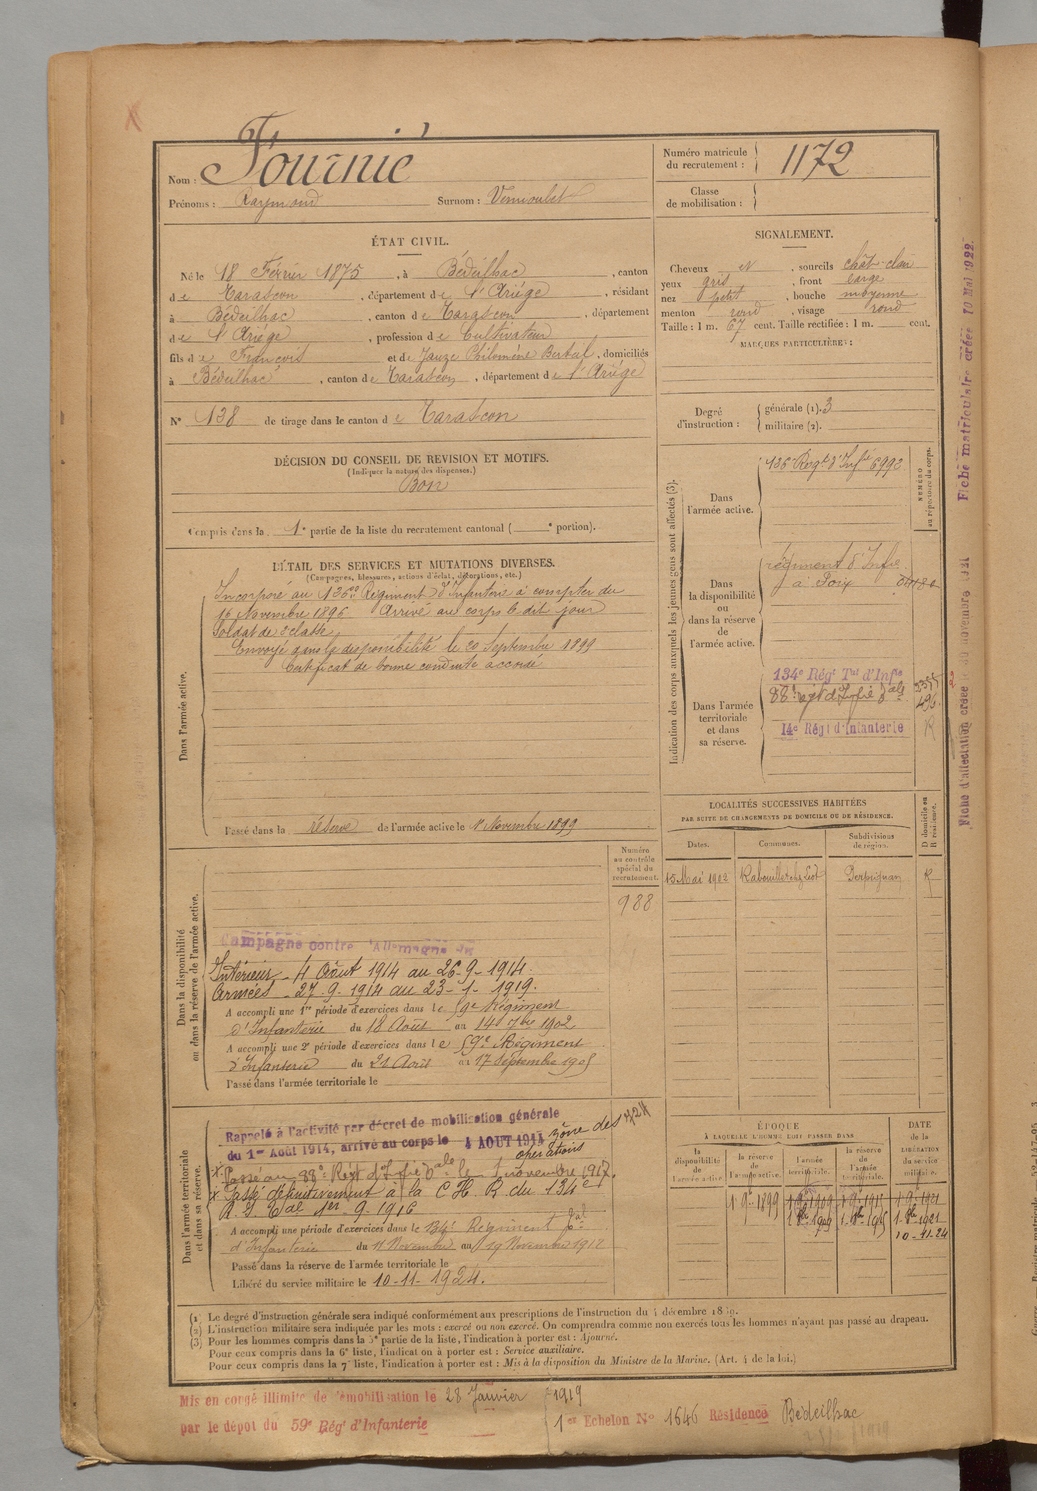 Nom : Fournié
Prénoms : Raymond Surnom :
Numéro matricule
du recrutement : 1172
Classe
de mobilisation :
ÉTAT CIVIL.
Né le 18 Février 1875, à Bédeilhac, canton
de Tarascon, département de l'Ariége, résidant
à Bédeilhac, canton de Tarascon, département
de l'Ariége, profession de Cultivateur
fils de François et de Jauze Philomène, domiciliés
à Bédeilhac, canton de Tarascon, département de l'Ariége
N° 138 de tirage dans le canton de Tarascon
SIGNALEMENT.
Cheveux et, sourcils chât-clair
yeux gris, front large
nez petit, bouche moyenne
menton rond, visage rond
Taille : 1 m. 67 cent. Taille rectifiée : 1 m. cent.
MARQUES PARTICULIÈRES :
Degré
d'instruction :
générale (1). 3
militaire (2).
DÉCISION DU CONSEIL DE REVISION ET MOTIFS.
(Indiquer la nature des dispenses.)
Bon
Compris dans la 1e partie de la liste du recrutement cantonal ( e portion).
DÉTAIL DES SERVICES ET MUTATIONS DIVERSES.
(Campagnes, blessures, actions d'éclat, décorations, etc.)
Dans l'armée active.
Incorporé au 136e Régiment d'Infanterie à compter du
16 Novembre 1896 Arrivé au corps le dit jour
soldat de 2e classe,
Envoyé dans la disponibilité le 20 Septembre 1899
Certificat de bonne conduite accordé
Passé dans la réserve de l'armée active le 1er Novembre 1899
Indication des corps auxquels les jeunes gens sont affectés (3).
NUMÉRO
au répertoire du corps.
Dans
l'armée active.
136e Régt d'Infie 6992
Dans
la disponibilité
ou
dans la réserve
de
l'armée active.
régiment d'Infie
à Foix
Dans l'armée
territoriale
et dans
sa réserve.
134e Régt Tal d'Infie
88e régt d'Infie Tale
14e Régt d'Infanterie
R
LOCALITÉS SUCCESSIVES HABITÉES
PAR SUITE DE CHANGEMENTS DE DOMICILE OU DE RÉSIDENCE.
Dates. Communes. Subdivisions
de région. D domicile ou
R résidence.
15 Mai 1902 Perpignan R
Dans la disponibilité
ou dans la réserve de l'armée active.
Numéro
au contrôle
spécial du
recrutement.
988
Campagne contre l'Allemagne du
Intérieur - 4 Août 1914 au 26-9-1914.
Armées - 27-9-1914 au 23-1-1919.
A accompli une 1re période d'exercices dans le 59e Régiment
d'Infanterie du 18 Août au 14 7bre 1902
A accompli une 2e période d'exercices dans le 59e Régiment
d'Infanterie du 21 Août au 17 Septembre 1905
Passé dans l'armée territoriale le
Dans l'armée territoriale
et dans sa réserve.
Rappelé à l'activité par décret de mobilisation générale
du 1er Août 1914, arrivé au corps le 4 AOUT 1914 zône des
opérations
Passé au 88e Régt d'Infie Tale le 1 novembre 1917.
Passé définitivement à la C.H.R du 134e
R.I. Tal 1er-9-1916
A accompli une période d'exercices dans le 134e Régiment Tal
d'Infanterie du 11 Novembre au 19 Novembre 1912
Passé dans la réserve de l'armée territoriale le
Libéré du service militaire le 10-11-1924.
ÉPOQUE
À LAQUELLE L'HOMME DOIT PASSER DANS
la
disponibilité
de
l'armée active
la réserve
de
l'armée active.
l'armée
territoriale.
la réserve
de
l'armée
territoriale.
DATE
de la
LIBÉRATION
du service
militaire.
1 9bre 1899 1 9bre 1909 1 9bre 1915 1-9-1921
1 8bre 1909 1-8bre 1915 1-8bre 1921
10-11-24
(1) Le degré d'instruction générale sera indiqué conformément aux prescriptions de l'instruction du 4 décembre 1889.
(2) L'instruction militaire sera indiquée par les mots : exercé ou non exercé. On comprendra comme non exercés tous les hommes n'ayant pas passé au drapeau.
(3) Pour les hommes compris dans la 5e partie de la liste, l'indication à porter est : Ajourné.
Pour ceux compris dans la 6e liste, l'indication à porter est : Service auxiliaire.
Pour ceux compris dans la 7e liste, l'indication à porter est : Mis à la disposition du Ministre de la Marine. (Art. 4 de la loi.)
Mis en congé illimité de démobilisation le 28 Janvier 1919
par le dépôt du 59e Rég' d'Infanterie 1er Echelon N° 1646 Résidence Bédeilhac
Fiche matriculaire créée 10 Mai 1922.